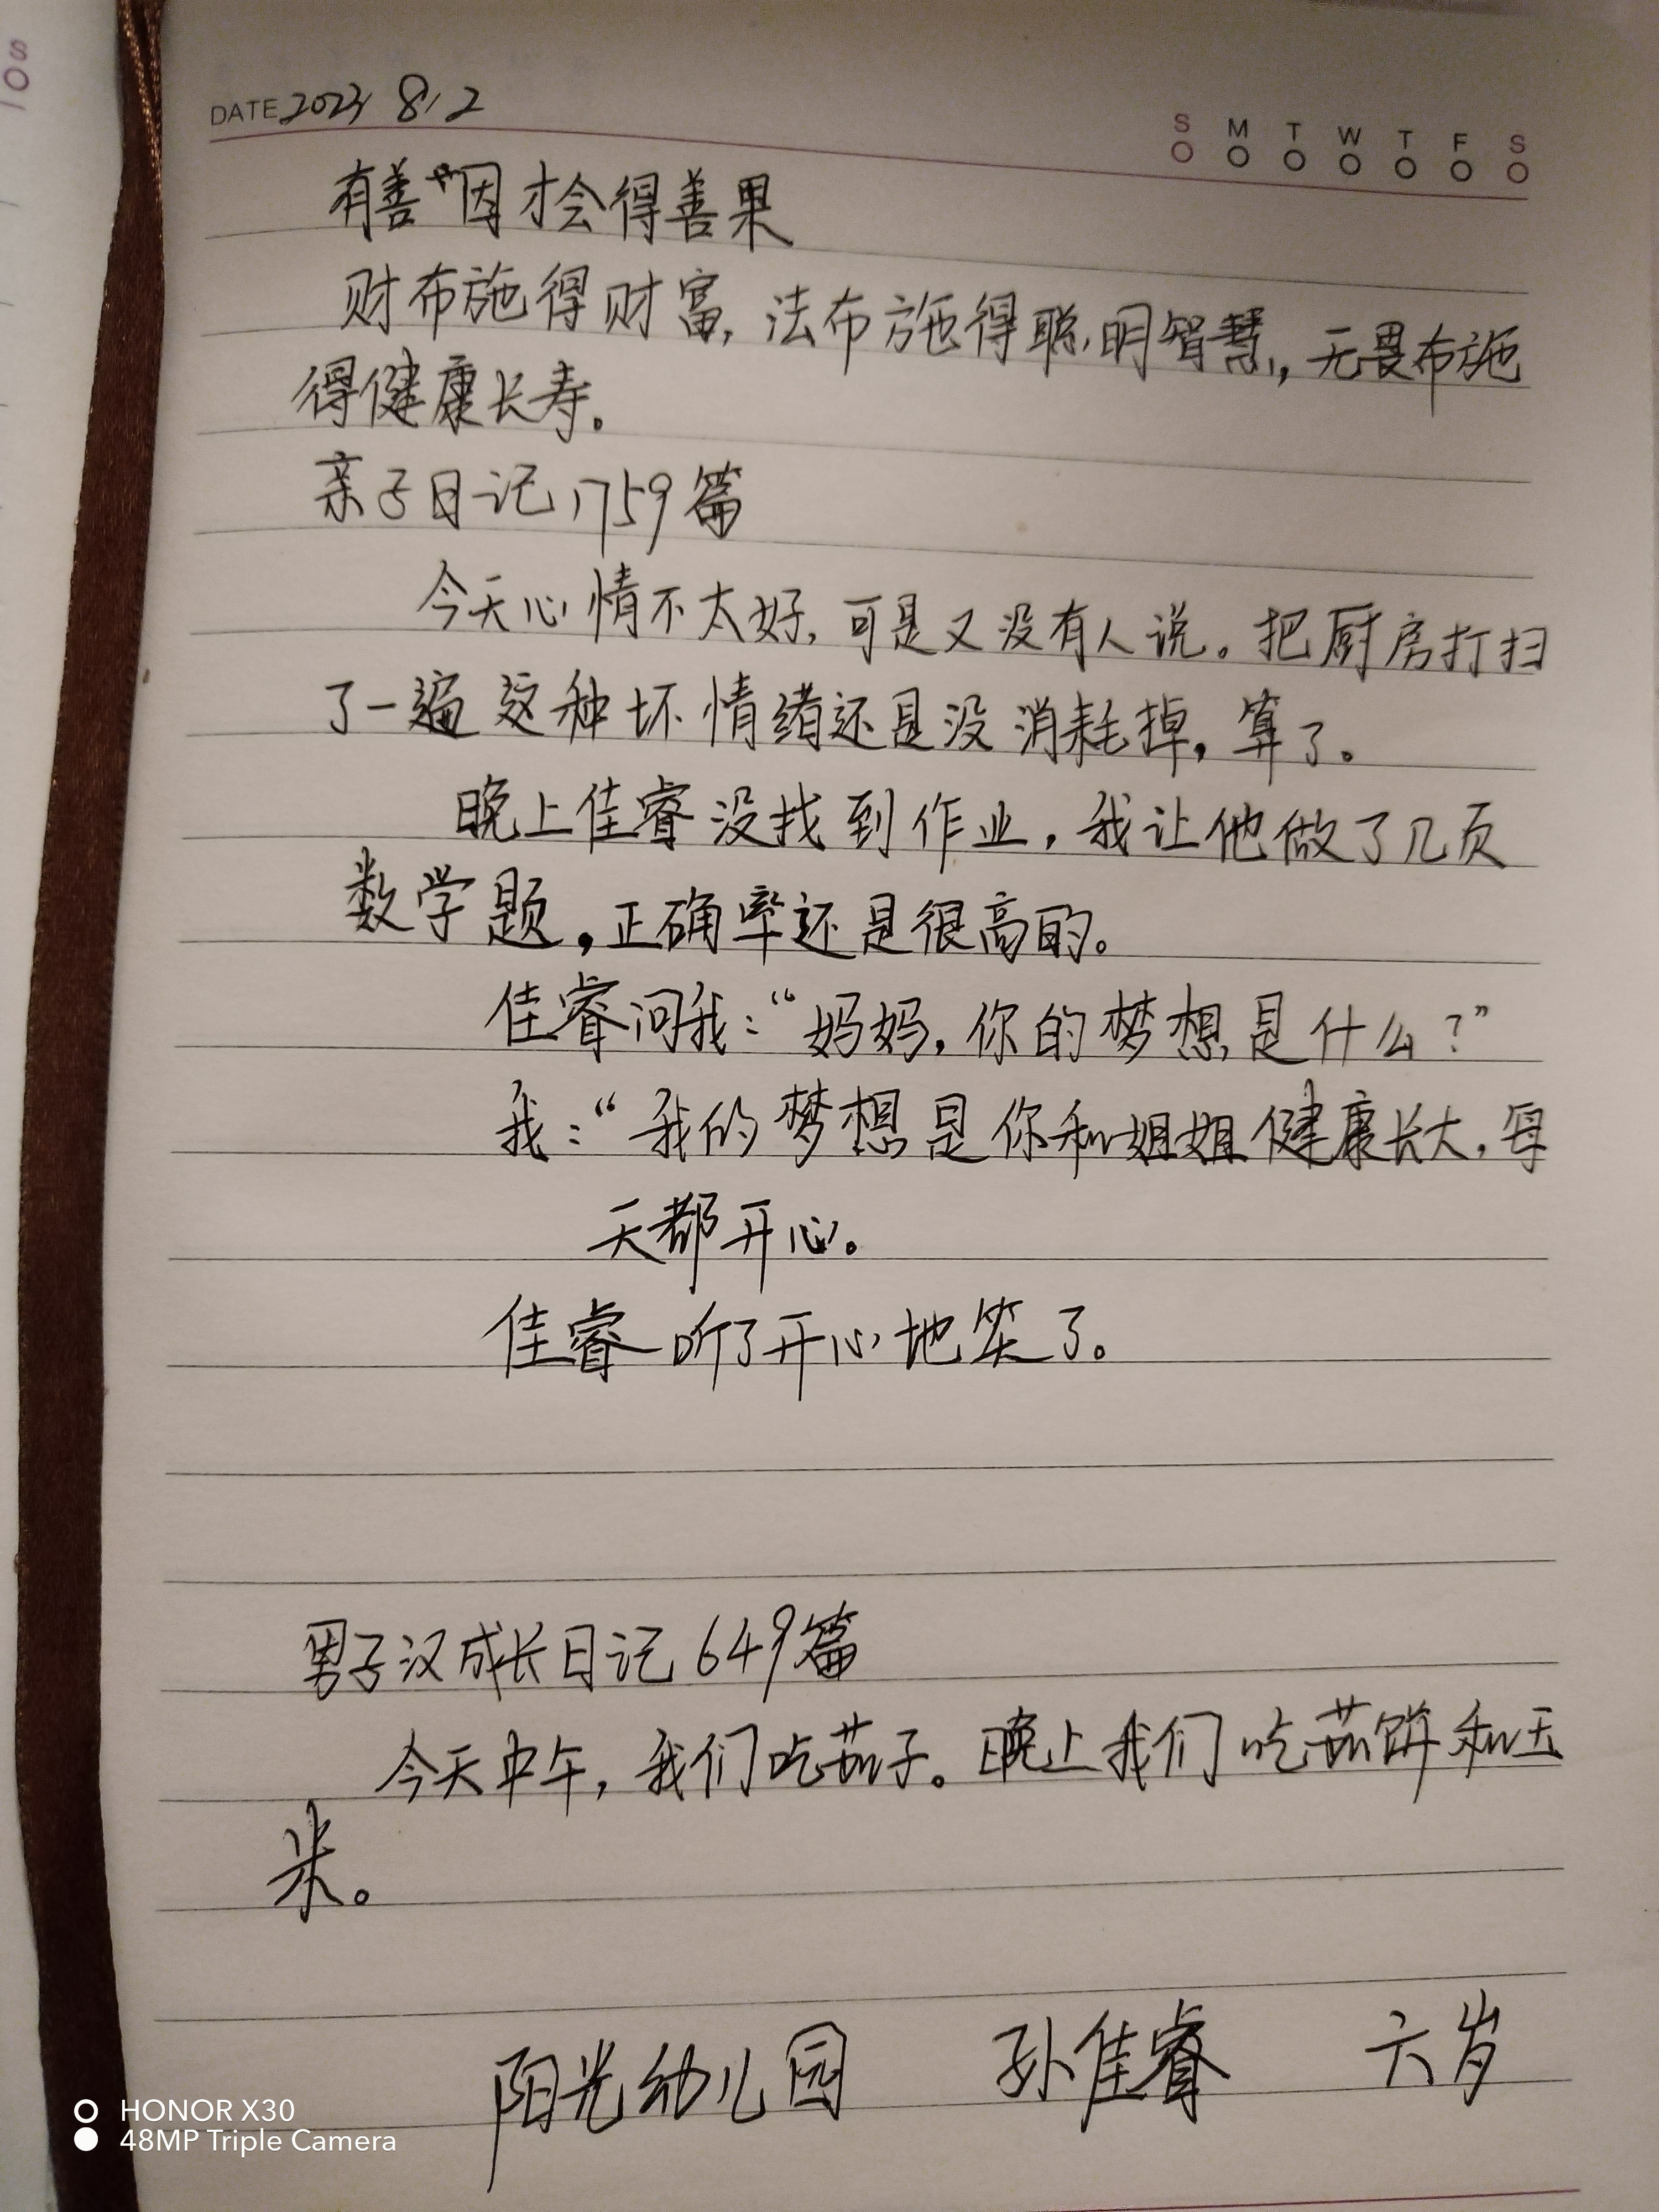 S
DATE 2023 8.2
S M T W T F S
有善因才会得善果
财布施得财富,法布施得聪明智慧,无畏布施
得健康长寿。
亲子日记1759篇
今天心情不太好,可是又没有人说。把厨房打扫
了一遍这种坏情绪还是没消耗掉,算了。
晚上佳睿没找到作业,我让他做了几页
数学题,正确率还是很高的。
佳睿问我:“妈妈,你的梦想是什么?”
我:“我的梦想是你和姐姐健康长大,每
天都开心。
佳睿听了开心地笑了。
男子汉成长日记649篇
今天中午,我们吃茄子。晚上我们吃茄饼和玉
米。
阳光幼儿园 孙佳睿 六岁
HONOR X30
48MP Triple Camera